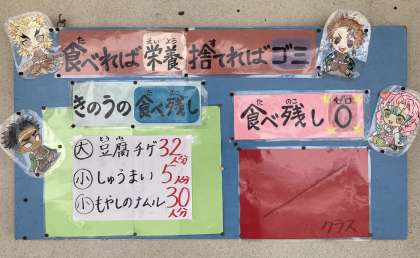 食べれば栄養捨てればゴミ
きのうの食べ残し
大 豆腐チゲ 32人分
小 しゅうまい 5人分
小 もやしのナムル 30人分
食べ残し 0
クラス